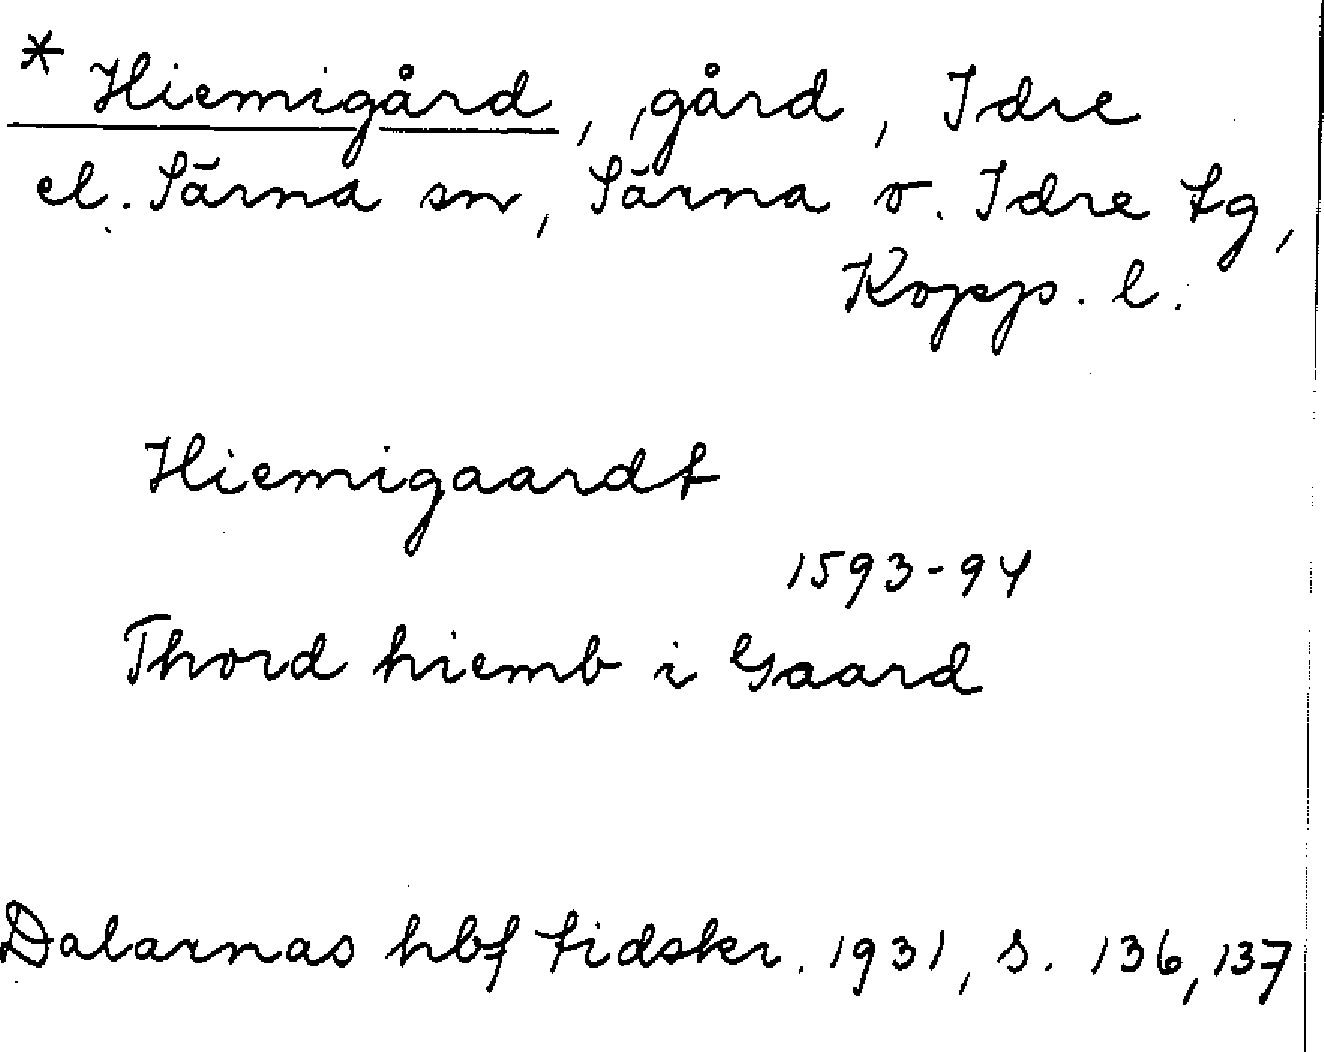 * Hiemigård, gård, Idre
el. Särna sn, Särna o. Idre tg,
Kopp. l.
Hiemigaardt
1593-94
Thord hiemb i Gaard
Dalarnas hbf tidskr. 1931, s. 136, 137